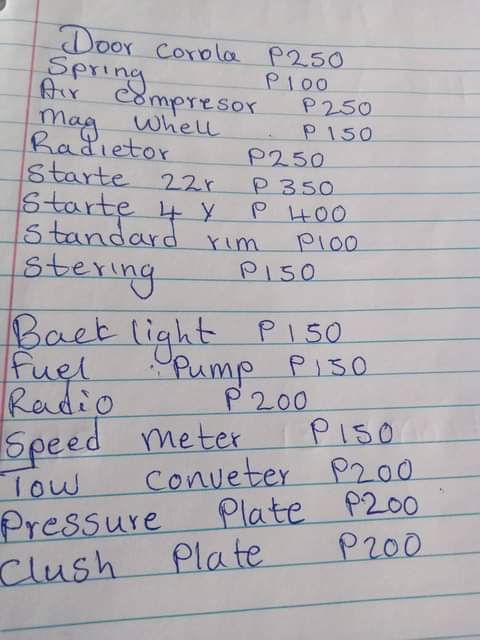 Door corola P250
Spring P100
Air compresor P250
Mag whell P150
Radietor P250
Starte 22r P350
Starte 4 Y P 400
Standard rim P100
Stering P150
Back light P150
Fuel Pump P150
Radio P200
Speed meter P150
Tow conveter P200
Pressure Plate P200
Clush Plate P200